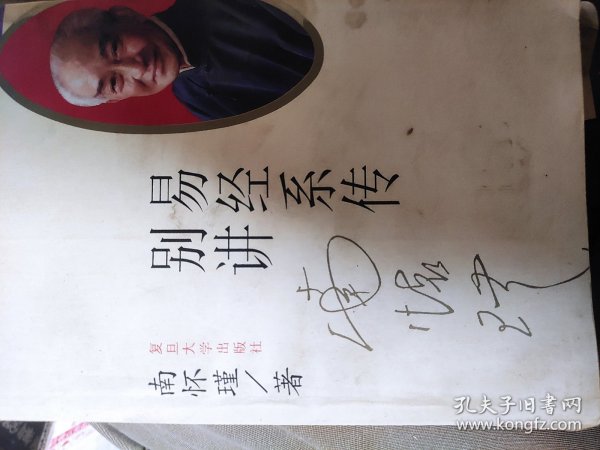 易经系传
别讲
南怀瑾
复旦大学出版社
南怀瑾/著
孔夫子旧书网
www.kongfz.com